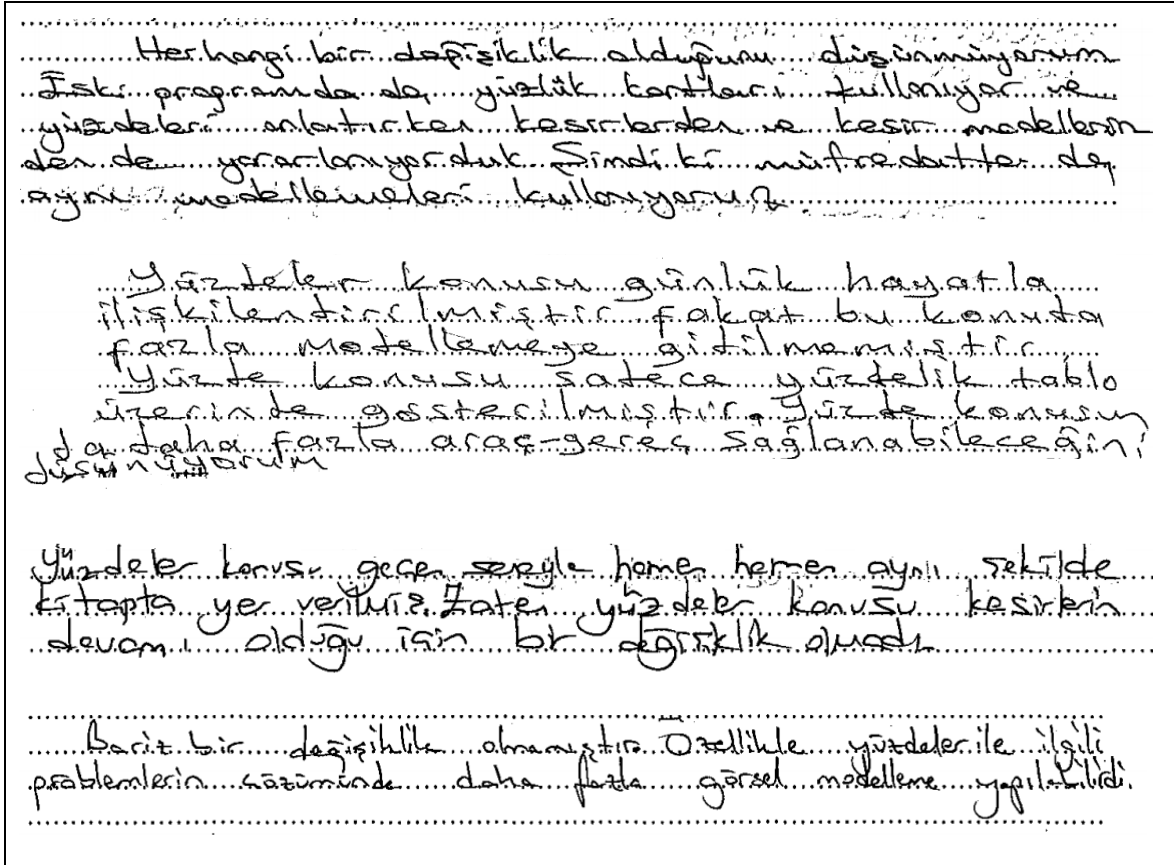 Herhangi bir değişiklik olduğunu düşünmüyorum
Eski programda da yüzlük kartları kullanıyor ve
yüzdeleri anlatırken kesirlerden ve kesir modellerin
den de yararlanıyorduk Şimdiki müfredatta da
aynı modellemeleri kullanıyoruz
Yüzdeler konusu günlük hayatla
ilişkilendirilmiştir fakat bu konuda
fazla modellemeye gidilmemiştir
Yüzde konusu sadece yüzdelik tablo
üzerinde gösterilmiştir. Yüzde konusun
da daha fazla araç-gereç sağlanabileceğini
düşünüyorum
Yüzdeler konusu geçen seneyle hemen hemen aynı şekilde
kitapta yer verilmiş. Zaten yüzdeler konusu kesirlerin
devamı olduğu için bir değişiklik olmadı
Bariz bir değişiklik olmamıştır. Özellikle yüzdeler ile ilgili
problemlerin çözümünde daha fazla görsel modelleme yapılabilirdi.